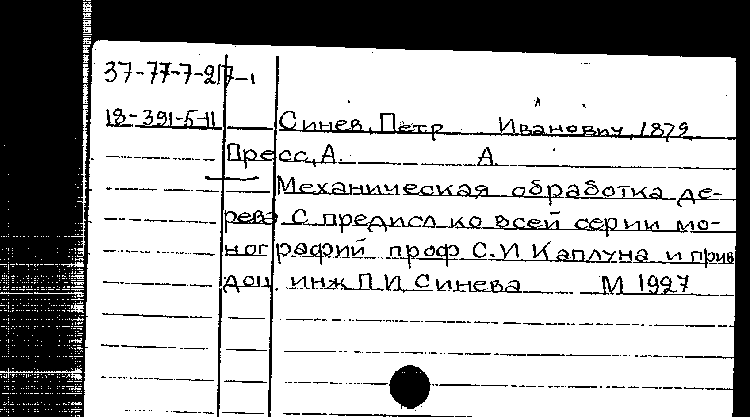 37-77-7-217-1
18-391-5-11 Синев, Петр Иванович, 1879
Пресс, А. А.
Механическая обработка де-
рева С предисл ко всей серии мо-
нографий проф С. И Каплуна и прив
доц. инж П. И. Синева М 1927